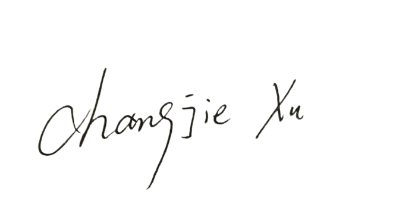 Changjie Xu